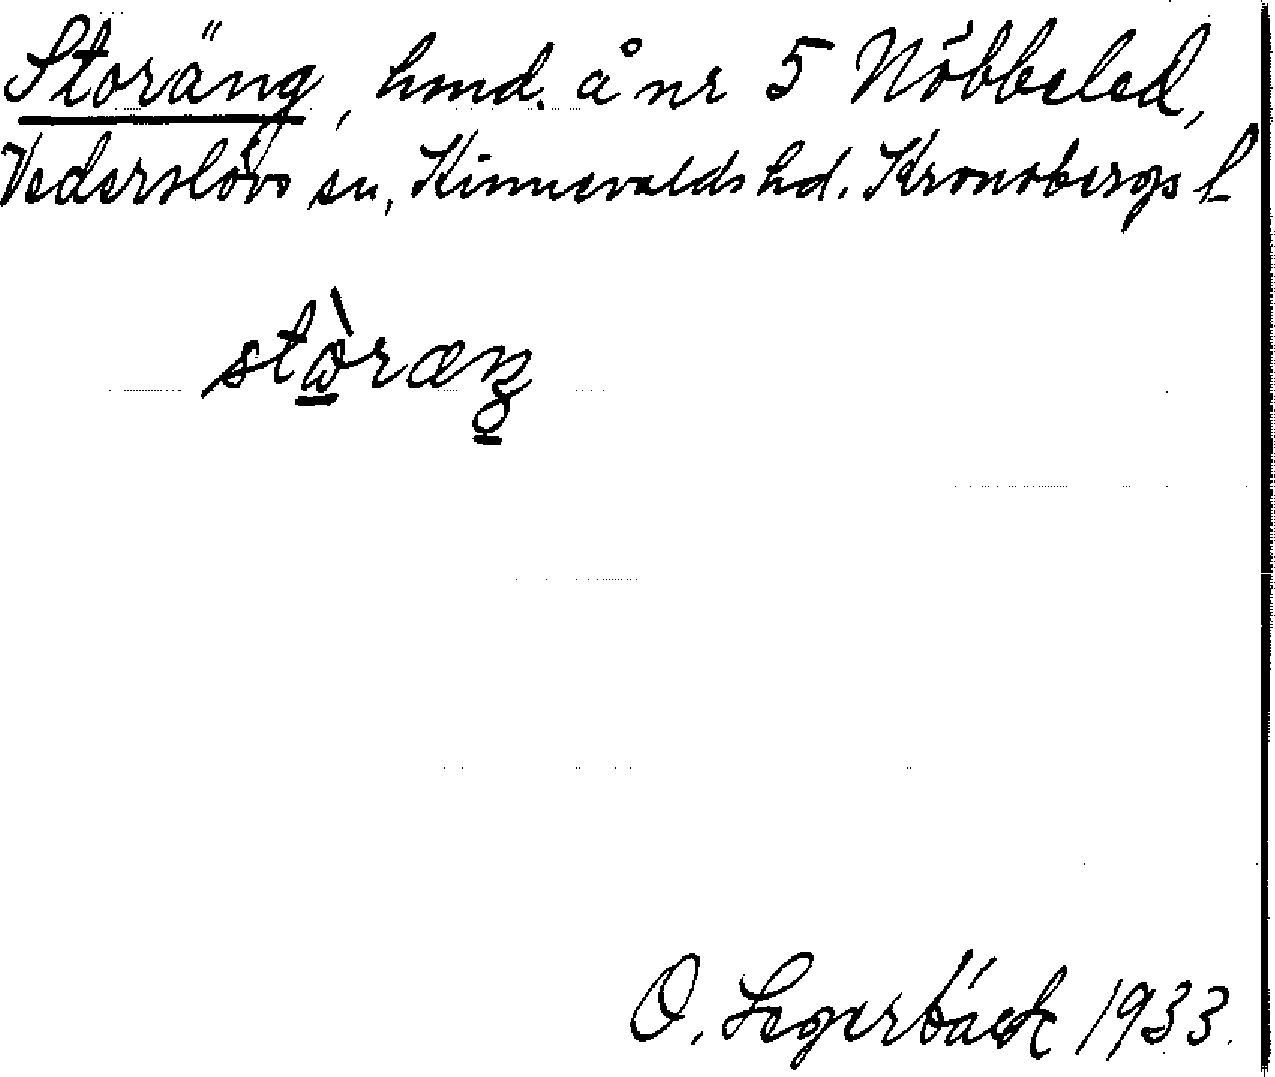 Storäng, hmd. å nr 5 Nöbbeled,
Vederslövs sn, Kinnevalds hd. Kronobergs l
O. Segerbäck 1933.